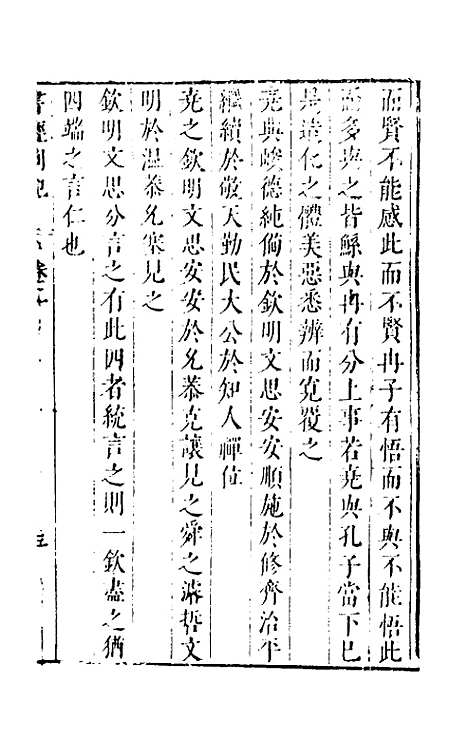 而賢不能感此而不賢冉子有悟而不與不能悟此
而多與之皆鯀與冉有分上事若堯與孔子當下已
是造化之體美惡悉辨而寬覆之
堯典峻德純備於欽明文思安安順施於修齊治平
繼續於敬天勤民大公於知人禪位
堯之欽明文思安安於允恭克讓見之舜之濬哲文
明於溫恭允塞見之
欽明文思分言之有此四者統言之則一欽盡之猶
四端之言仁也
書經 卷